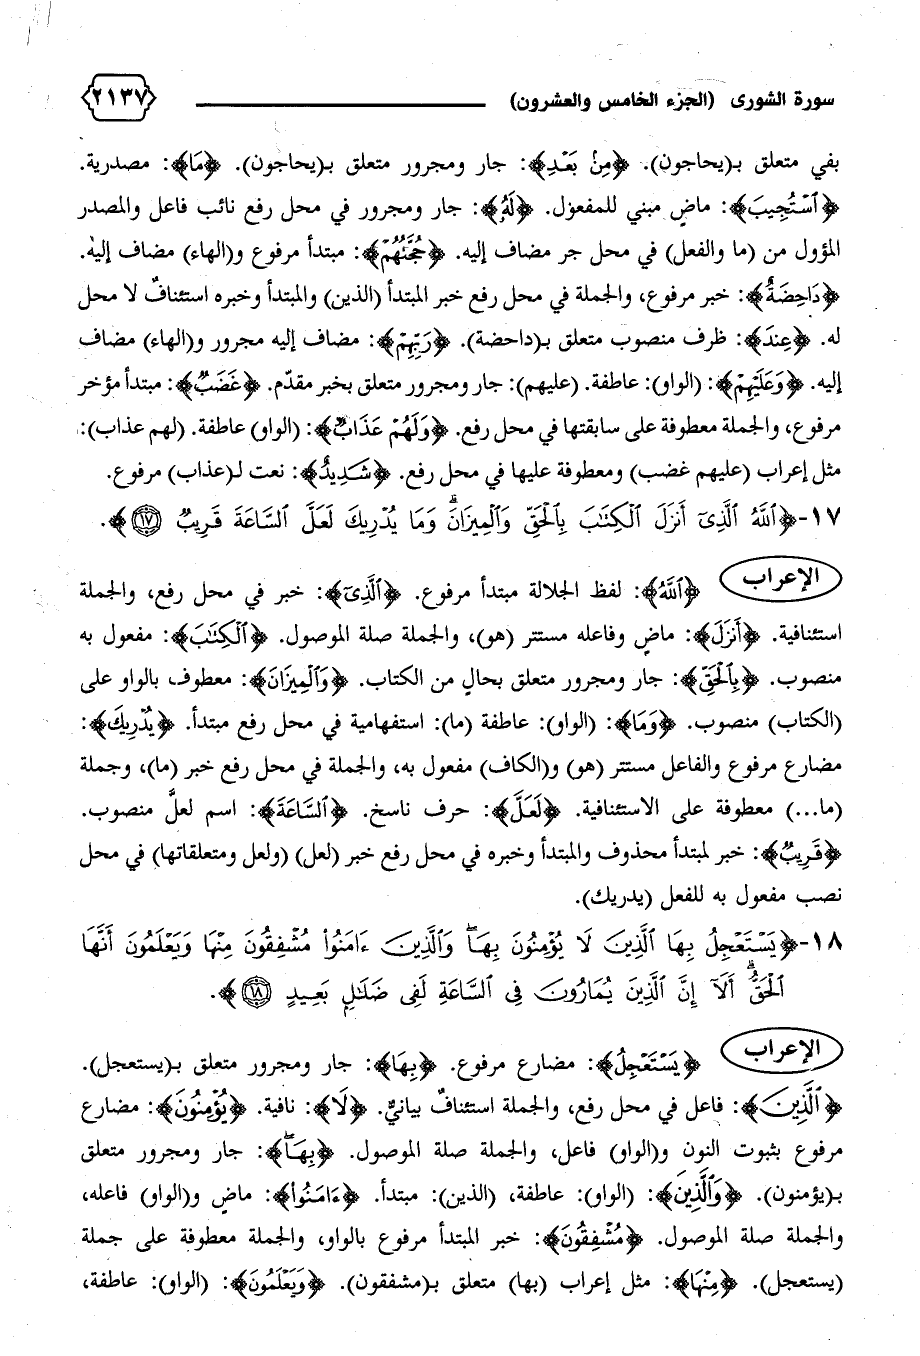 سورة الشورى (الجزء الخامس والعشرون)
٢١٣٧
بفي متعلق بـ(يحاجون). ﴿مِنۢ بَعْدِ﴾: جار ومجرور متعلق بـ(يحاجون). ﴿مَا﴾: مصدرية.
﴿ٱسْتُجِيبَ﴾: ماضٍ مبني للمفعزل. ﴿لَهُۥ﴾: جار ومجرور في محل رفع نائب فاعل والمصدر
المؤول من (ما والفعل) في محل جر مضاف إليه. ﴿حُجَّتُهُمْ﴾: مبتدأ مرفوع و(الهاء) مضاف إليه.
﴿دَاحِضَةٌ﴾: خبر مرفوع، والجملة في محل رفع خبر المبتدأ (الذين) والمبتدأ وخبره استئنافٌ لا محل
له. ﴿عِندَ﴾: ظرف منصوب متعلق بـ(داحضة). ﴿رَبِّهِمْ﴾: مضاف إليه مجرور و(الهاء) مضاف
إليه. ﴿وَعَلَيْهِمْ﴾: (الواو): عاطفة. (عليهم): جار ومجرور متعلق بخبر مقدّم. ﴿غَضَبٌ﴾: مبتدأ مؤخر
مرفوع، والجملة معطوفة على سابقتها في محل رفع. ﴿وَلَهُمْ عَذَابٌ﴾: (الواو) عاطفة. (لهم عذاب):
مثل إعراب (عليهم غضب) ومعطوفة عليها في محل رفع. ﴿شَدِيدٌ﴾: نعت لـ(عذاب) مرفوع.
١٧-﴿ٱللَّهُ ٱلَّذِىٓ أَنزَلَ ٱلْكِتَٰبَ بِٱلْحَقِّ وَٱلْمِيزَانَ ۗ وَمَا يُدْرِيكَ لَعَلَّ ٱلسَّاعَةَ قَرِيبٌ ١٧﴾.
الإعراب ﴿ٱللَّهُ﴾: لفظ الجلالة مبتدأ مرفوع. ﴿ٱلَّذِىٓ﴾: خبر في محل رفع، والجملة
استئنافية. ﴿أَنزَلَ﴾: ماضٍ وفاعله مستتر (هو)، والجملة صلة الموصول. ﴿ٱلْكِتَٰبَ﴾: مفعول به
منصوب. ﴿بِٱلْحَقِّ﴾: جار ومجرور متعلق بحالٍ من الكتاب. ﴿وَٱلْمِيزَانَ﴾: معطوف بالواو على
(الكتاب) منصوب. ﴿وَمَا﴾: (الواو): عاطفة (ما): استفهامية في محل رفع مبتدأ. ﴿يُدْرِيكَ﴾:
مضارع مرفوع والفاعل مستتر (هو) و(الكاف) مفعول به، والجملة في محل رفع خبر (ما)، وجملة
(ما...) معطوفة على الاستئنافية. ﴿لَعَلَّ﴾: حرف ناسخ. ﴿ٱلسَّاعَةَ﴾: اسم لعلَّ منصوب.
﴿قَرِيبٌ﴾: خبر لمبتدأ محذوف والمبتدأ وخبره في محل رفع خبر (لعل) (ولعل ومتعلقاتها) في محل
نصب مفعول به للفعل (يدريك).
١٨-﴿يَسْتَعْجِلُ بِهَا ٱلَّذِينَ لَا يُؤْمِنُونَ بِهَا ۖ وَٱلَّذِينَ ءَامَنُوا۟ مُشْفِقُونَ مِنْهَا وَيَعْلَمُونَ أَنَّهَا
ٱلْحَقُّ ۗ أَلَآ إِنَّ ٱلَّذِينَ يُمَارُونَ فِى ٱلسَّاعَةِ لَفِى ضَلَٰلٍۭ بَعِيدٍ ١٨﴾.
الإعراب ﴿يَسْتَعْجِلُ﴾: مضارع مرفوع. ﴿بِهَا﴾: جار ومجرور متعلق بـ(يستعجل).
﴿ٱلَّذِينَ﴾: فاعل في محل رفع، والجملة استئنافٌ بيانيٌّ. ﴿لَا﴾: نافية. ﴿يُؤْمِنُونَ﴾: مضارع
مرفوع بثبوت النون و(الواو) فاعل، والجملة صلة الموصول. ﴿بِهَا ۖ﴾: جار ومجرور متعلق
بـ(يؤمنون). ﴿وَٱلَّذِينَ﴾: (الواو): عاطفة، (الذين): مبتدأ. ﴿ءَامَنُوا۟﴾: ماضٍ و(الواو) فاعله،
والجملة صلة الموصول. ﴿مُشْفِقُونَ﴾: خبر المبتدأ مرفوع بالواو، والجملة معطوفة على جملة
(يستعجل). ﴿مِنْهَا﴾: مثل إعراب (بها) متعلق بـ(مشفقون). ﴿وَيَعْلَمُونَ﴾: (الواو): عاطفة،